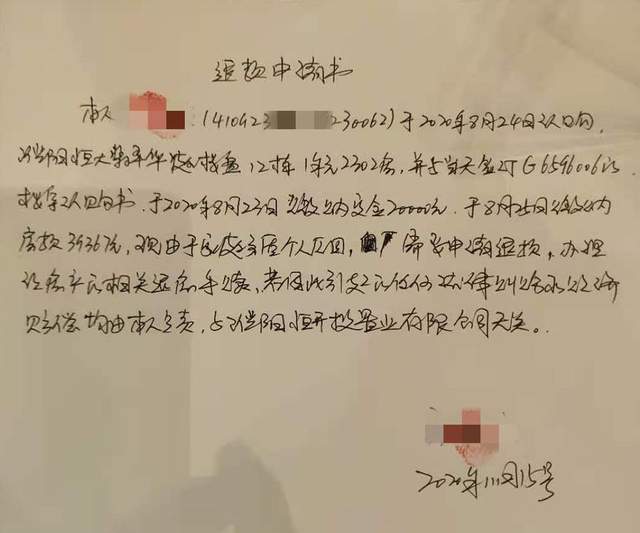 退款申请书
本人 :(410923 230062)于2020年8月24日认购
濮阳恒大翡翠华庭楼盘12栋1单元2302房,并与当天签订G6596006认
认购书.于2020年8月23日缴纳定金20000元.于8月25日缴纳
房款39367元,现由于 个人原因, 需要申请退款,办理
该房产的相关退房手续,若因此引发的任何法律纠纷和经济
赔偿均由本人负责,与濮阳恒开投置业有限公司无关。
2020年11月15号